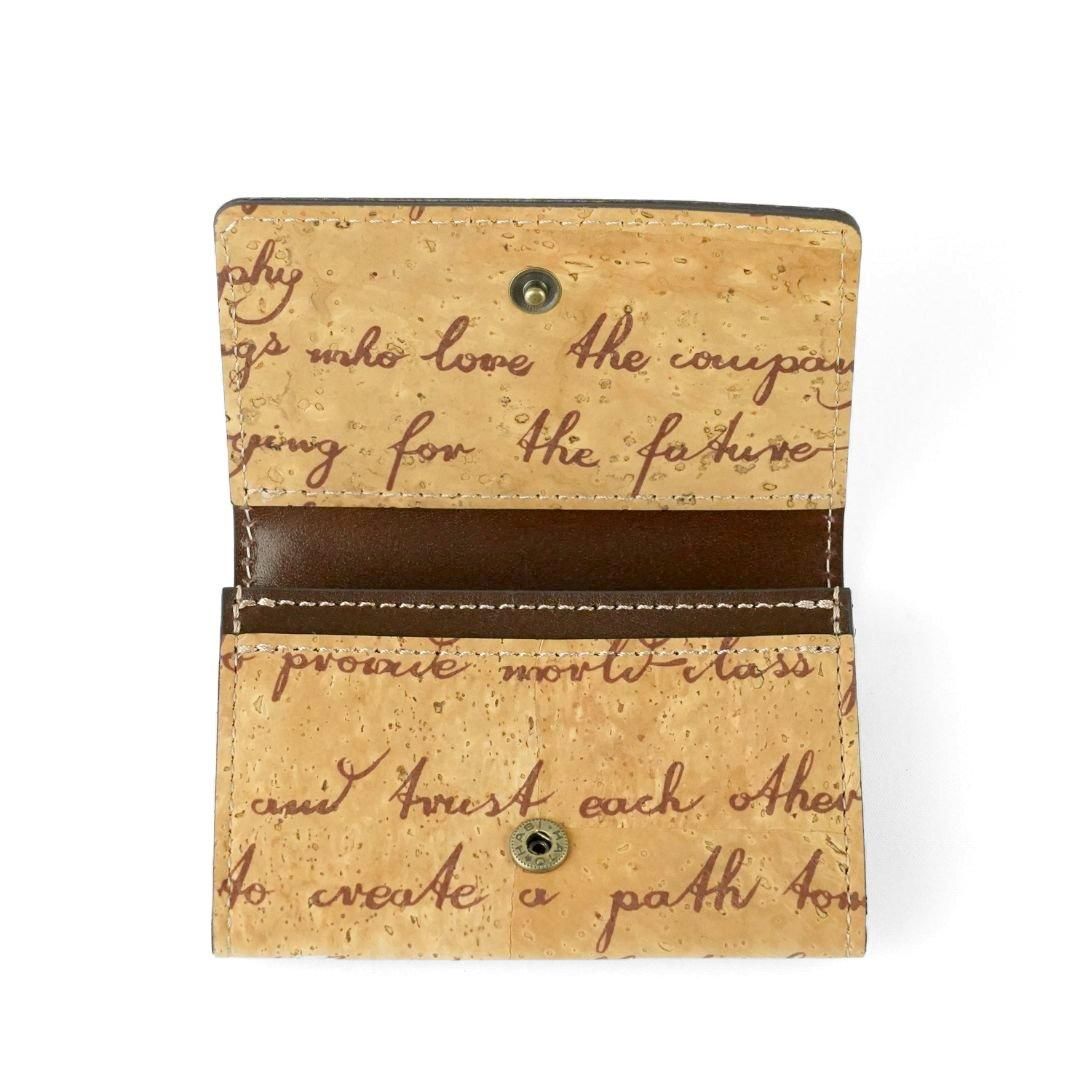 phy
gs who love the compan
ying for the future
to provide world-class
and trust each other
HABI
to create a path tow